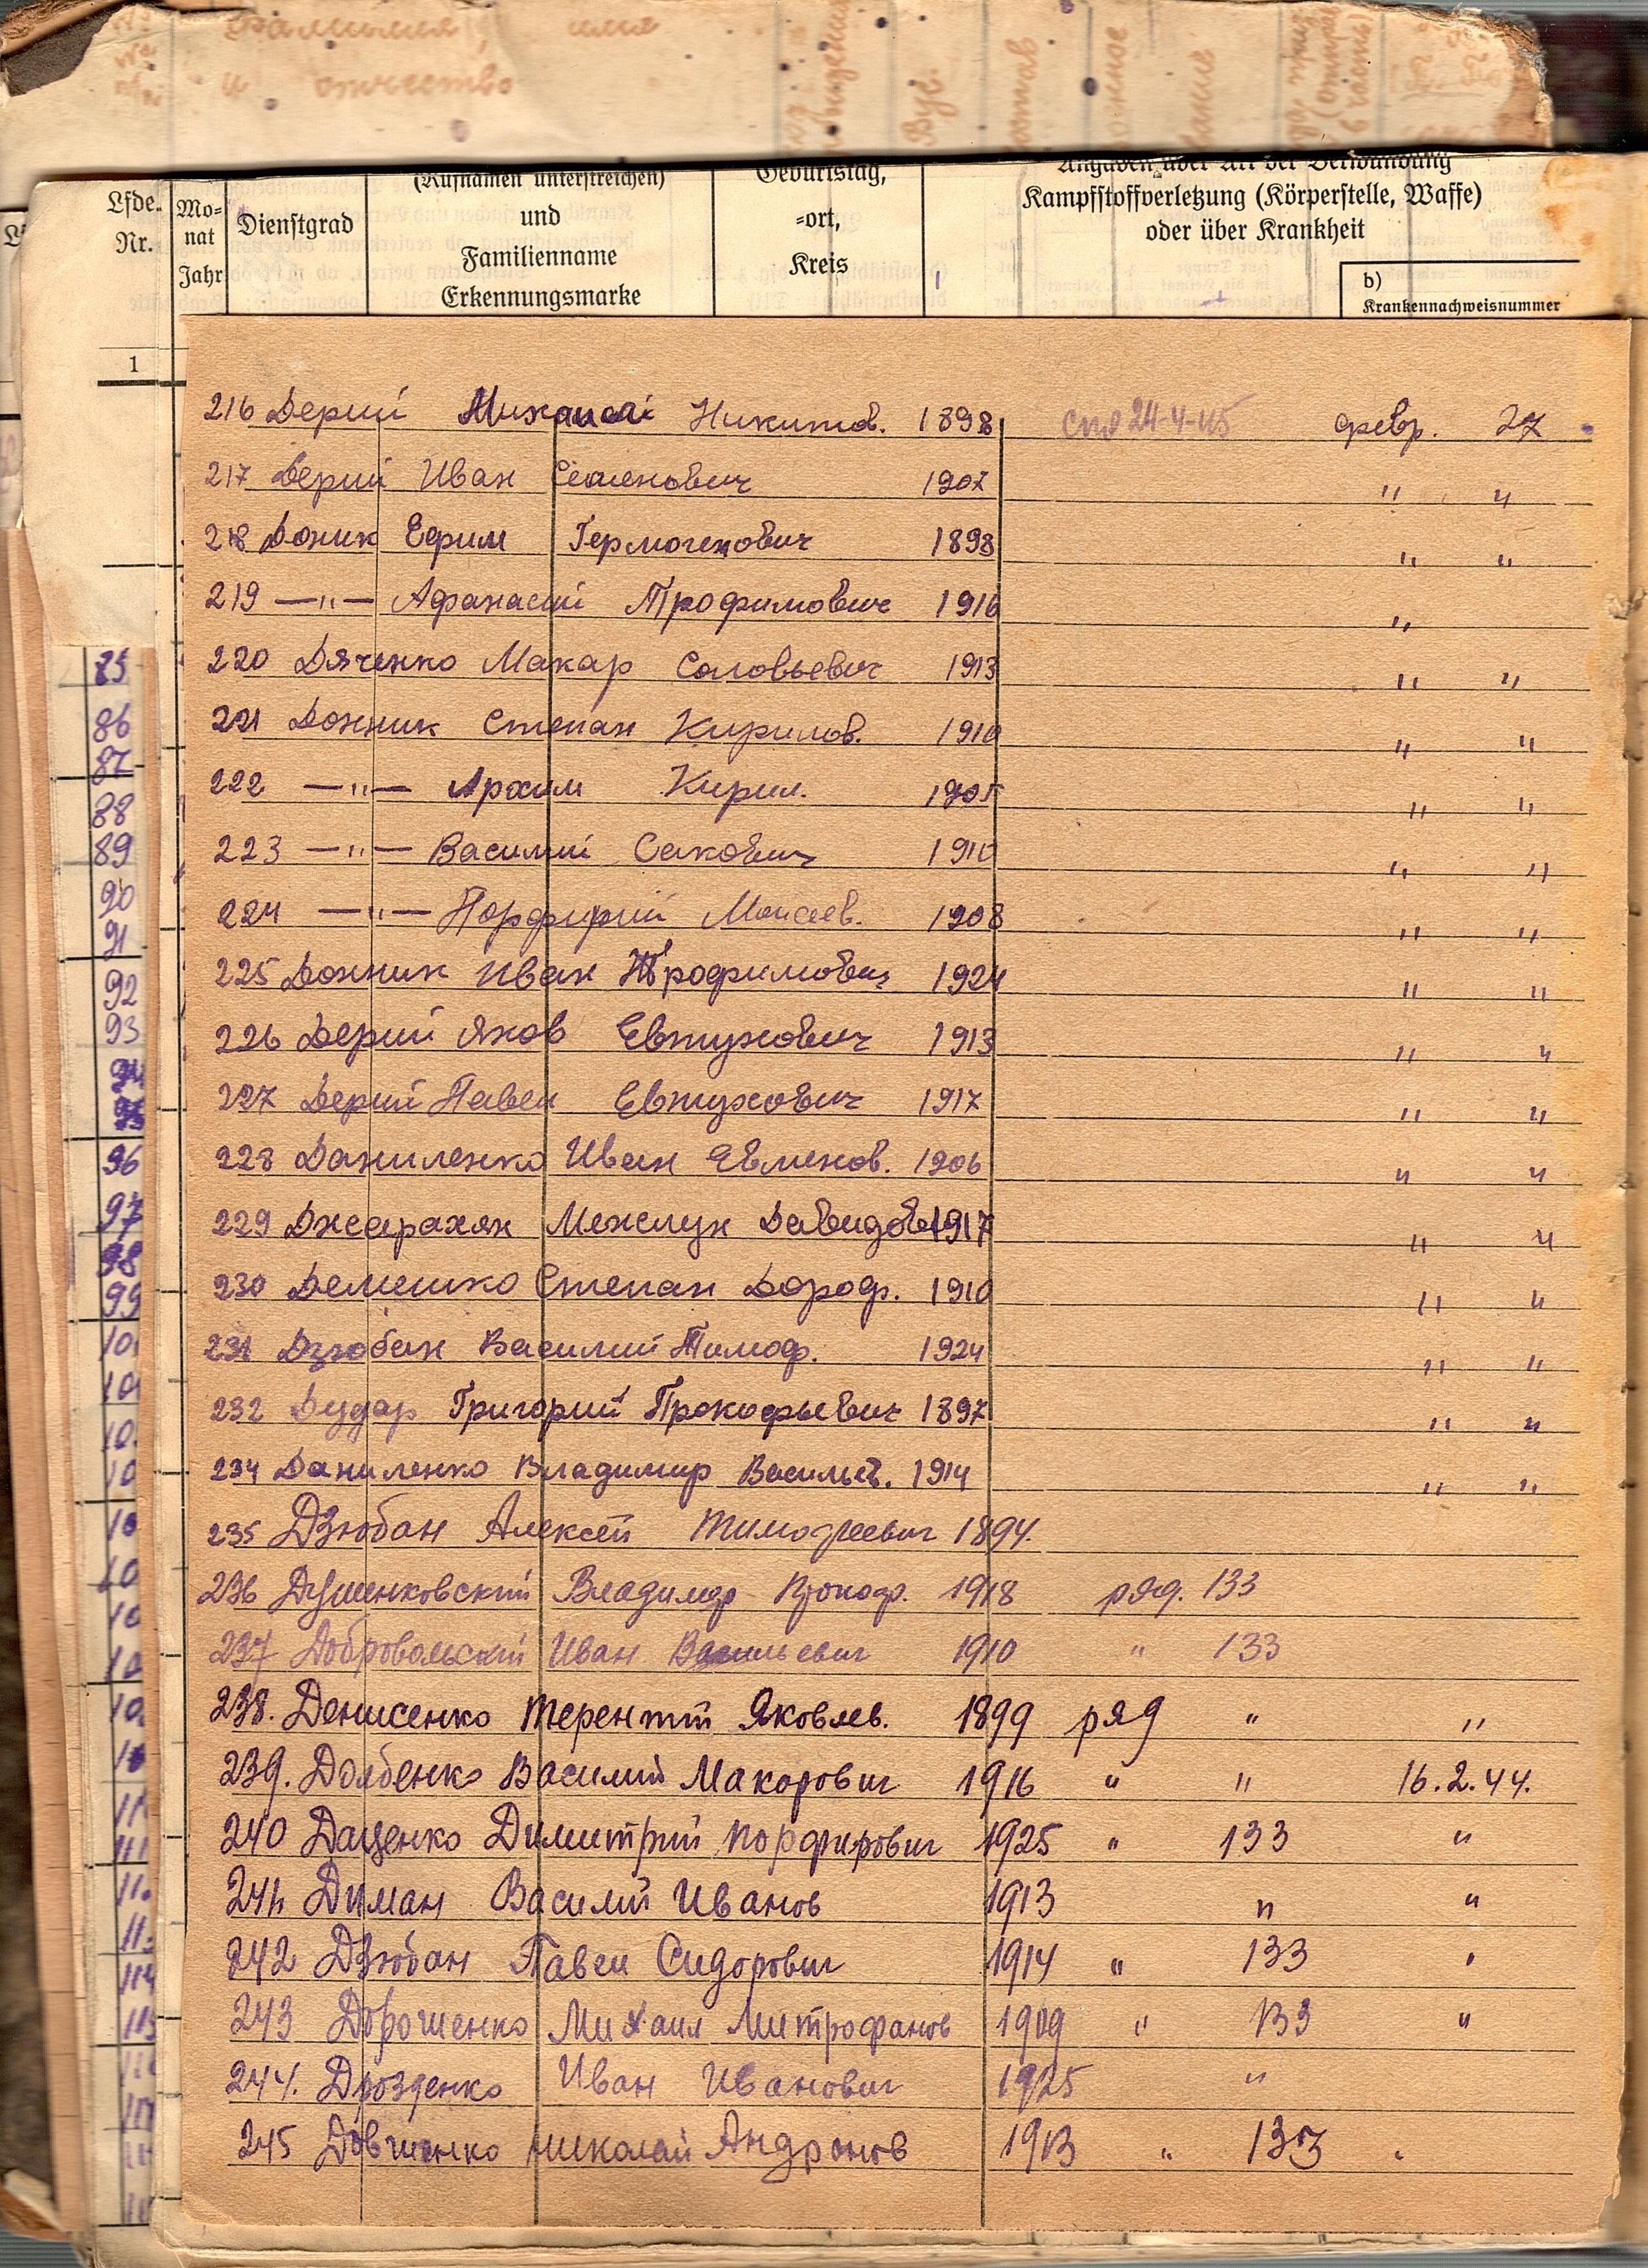 Фамилия, имя
и отчество
(Rufnamen unterstreichen) Geburtstag, Angaben über Art der Verwundung
Lfde. Mo- Dienstgrad und -ort, Kampfstoffverletzung (Körperstelle, Waffe)
Nr. nat Familienname Kreis oder über Krankheit
Jahr Erkennungsmarke b)
Krankennachweisnummer
1
216 Дерий Михаил Никитов. 1898 24-4-45 февр. 27
217 Дерий Иван Семенович 1907 " "
218 Доник Ефим Гермогенович 1898 " "
219 —"— Афанасий Трофимович 1916 "
220 Дяченко Макар Соловьевич 1913 " "
221 Донник Степан Кирилов. 1910 " "
222 —"— Архим Кирил. 1905 " "
223 —"— Василий Сакович 1910 " "
224 —"— Порфирий Моисеев. 1908 " "
225 Донник Иван Трофимович 1924 " "
226 Дерий Яков Евтухович 1913 " "
227 Дерий Павел Евтухович 1917 " "
228 Даниленко Иван Евменов. 1906 " "
229 Джарахян Давидов 1917 " "
230 Демешко Степан Дороф. 1910 " "
231 Дзюбан Василий Тимоф. 1924 " "
232 Дудар Григорий Прокофьевич 1897 " "
234 Даниленко Владимир Васильев. 1914 " "
235 Дзюбан Алексей Тимофеевич 1894.
236 Душенковский Владимир Прокоф. 1918 ряд. 133
237 Добровольский Иван Васильевич 1910 " 133
238. Денисенко Терентий Яковлев. 1899 ряд " "
239. Долбенко Василий Макорович 1916 " " 16.2.44.
240 Даценко Димитрий Порфирович 1925 " 133 "
241 Диман Василий Иванов 1913 " "
242 Дзюбан Павел Сидорович 1914 " 133 "
243 Дорошенко Михаил Митрофанов 1909 " 133 "
244. Дрозденко Иван Иванович 1925 "
245 Довженко Николай Андронов 1913 " 133 "
85
86
87
88
89
90
91
92
93
94
95
96
97
98
99